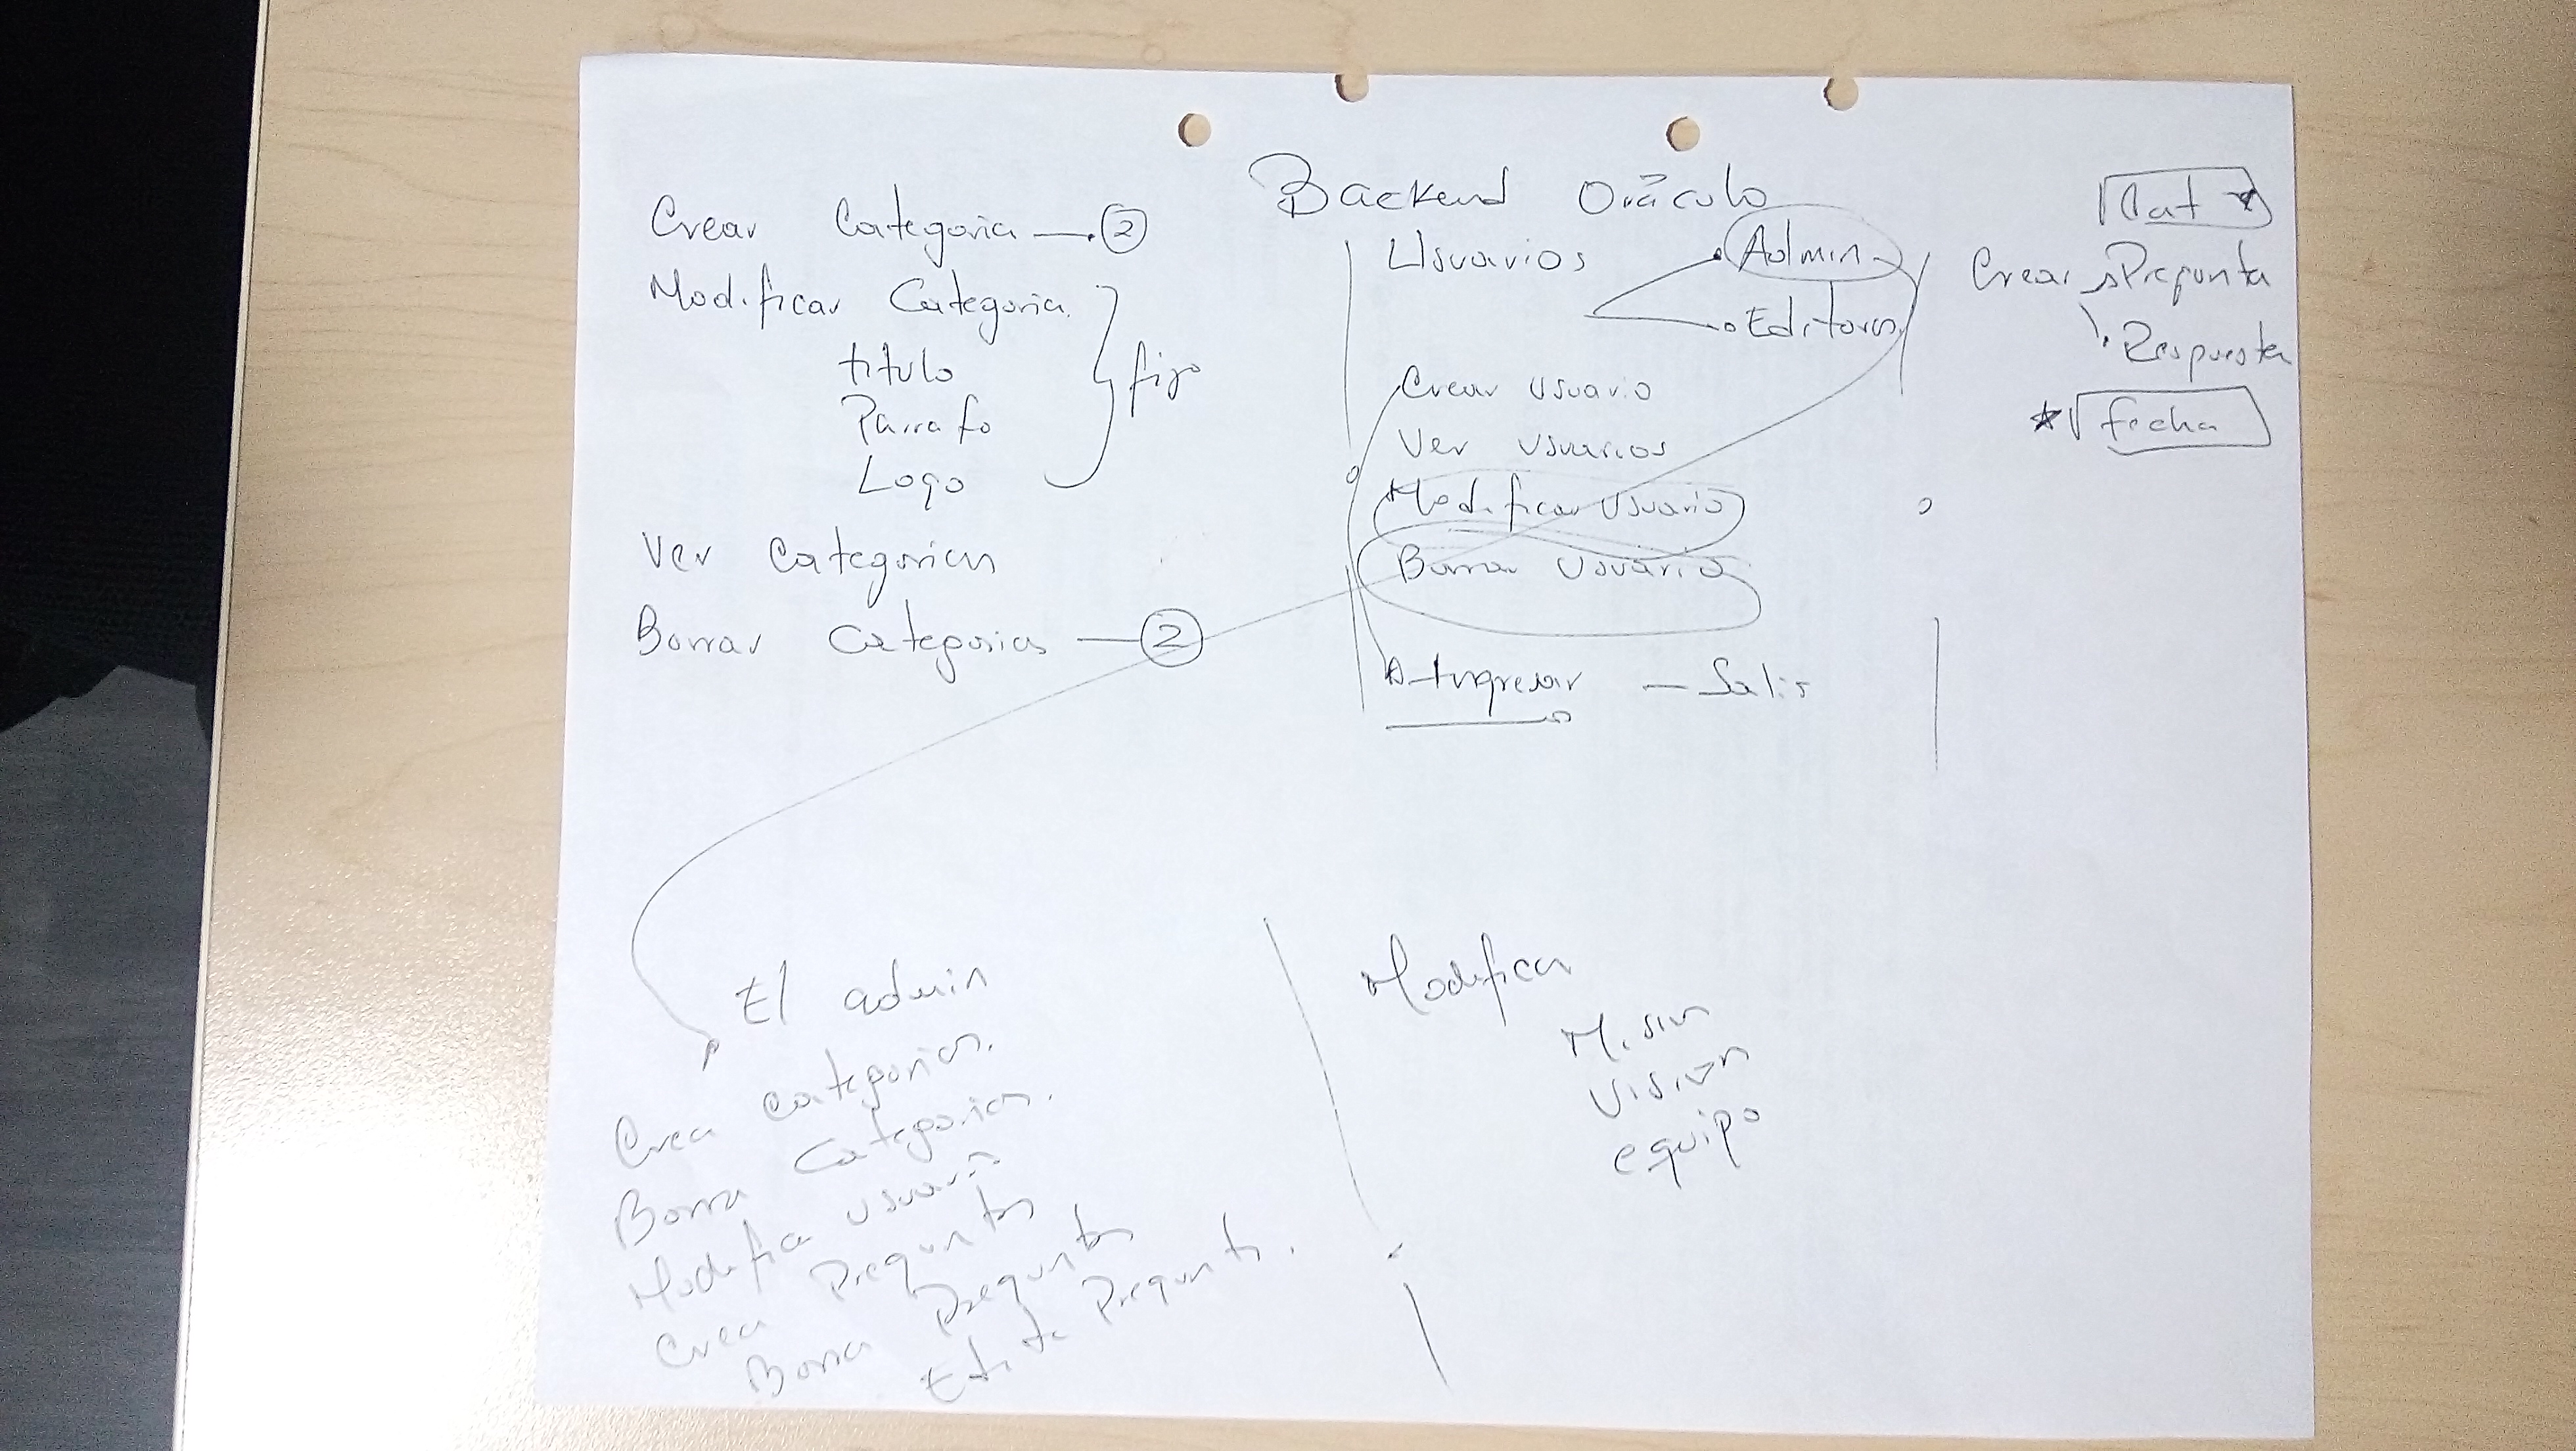 Backend Oráculo
Crear Categoria — 2
Modificar Categoria
titulo
Parrafo
Logo
fijo
Ver Categorias
Borrar Categorias — 2
Usuarios
Admin
Editores
Crear usuario
Ver usuarios
Modificar usuario
Borrar usuario
Ingresar — Salir
Cat
Crear Pregunta
Respuesta
fecha
El admin
Crea categorias.
Borra Categorias.
Modifica usuario
Crea Preguntas
Borra Preguntas
Edita Pregunta.
Modificar
Mision
Vision
equipo